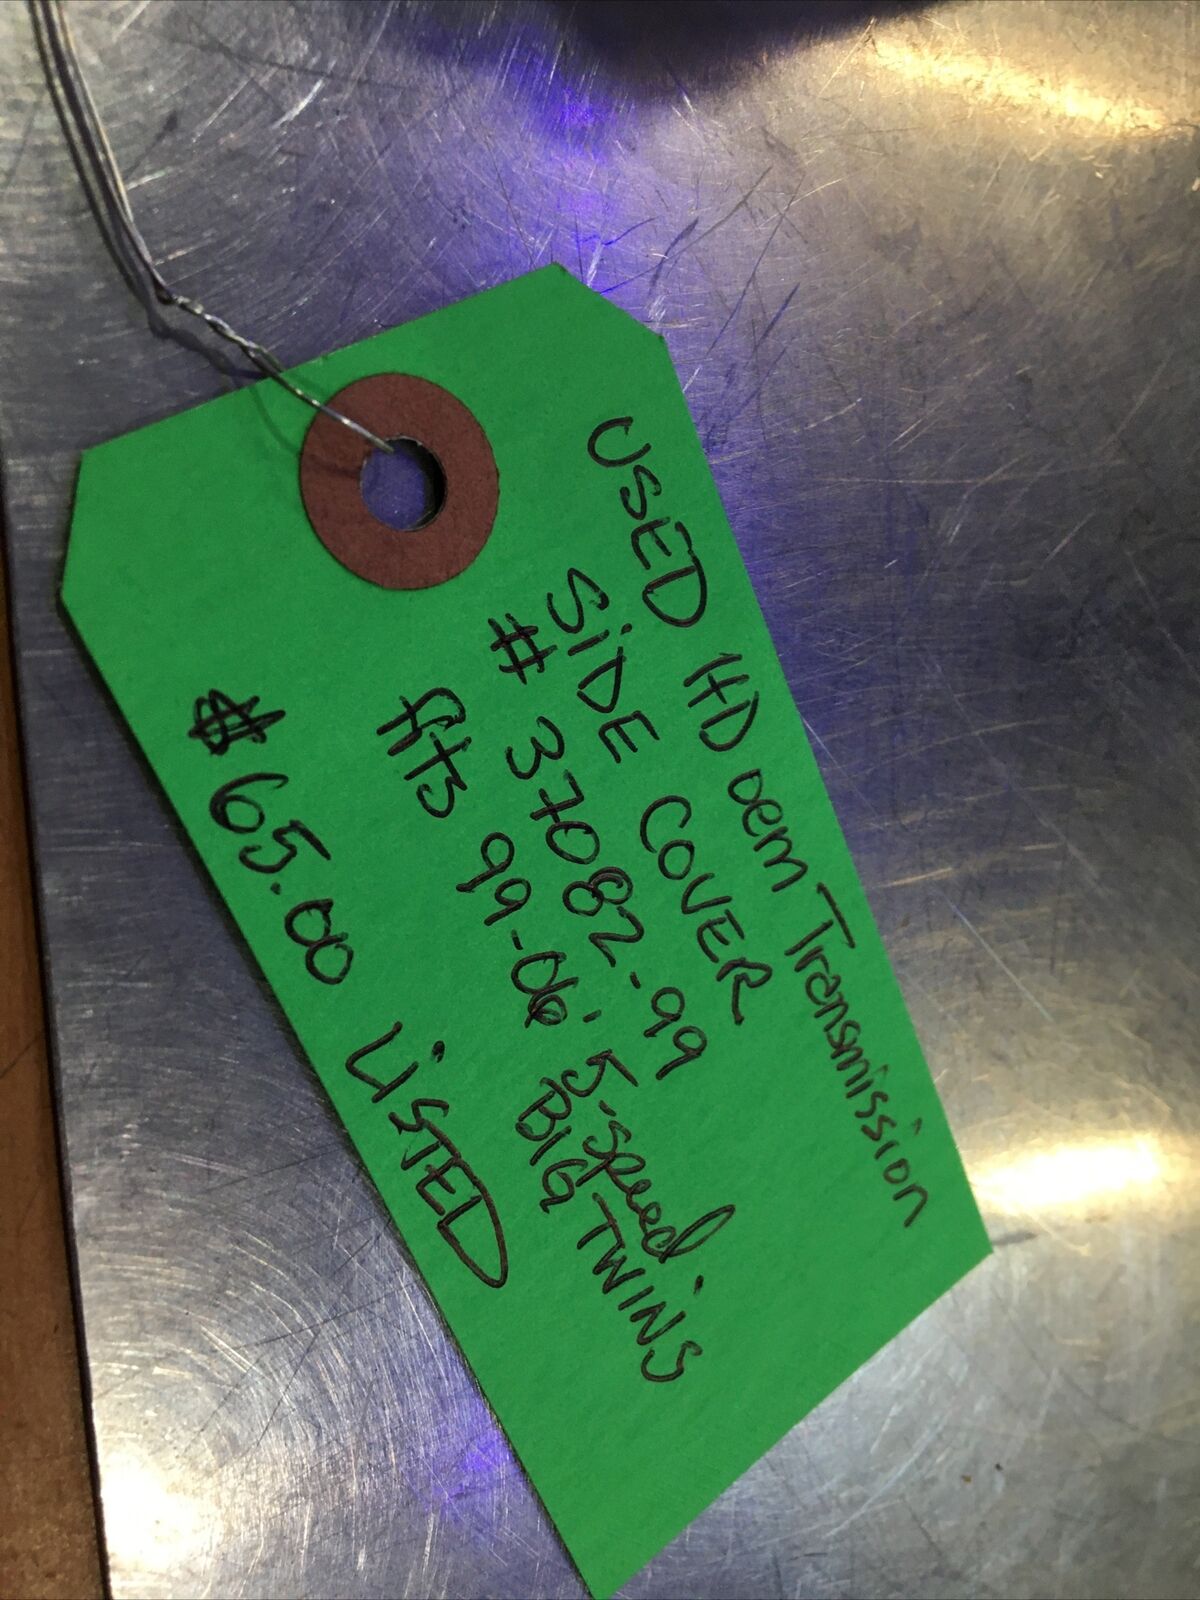 USED HD oem Transmission
SiDE COVER
# 37082-99
fits 99-06' 5-speed
BIG TWiNS
$65.00 LiSTED